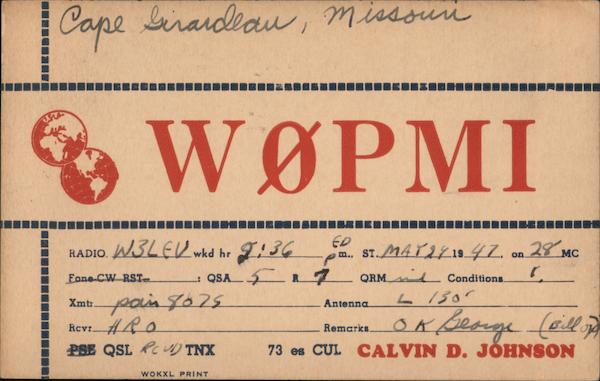 Cape Girardeau, Missouri
WØPMI
RADIO W3LEV wkd hr 2:36 P m. ED ST. MAY 24 1947. on 28 MC
Fone CW RST : QSA 5 R 7 QRM nil Conditions
Xmtr pair 807s Antenna L 130'
Rcvr HRO Remarks OK George (Bill op)
PSE QSL RCVD TNX 73 es CUL CALVIN D. JOHNSON
WOKXL PRINT